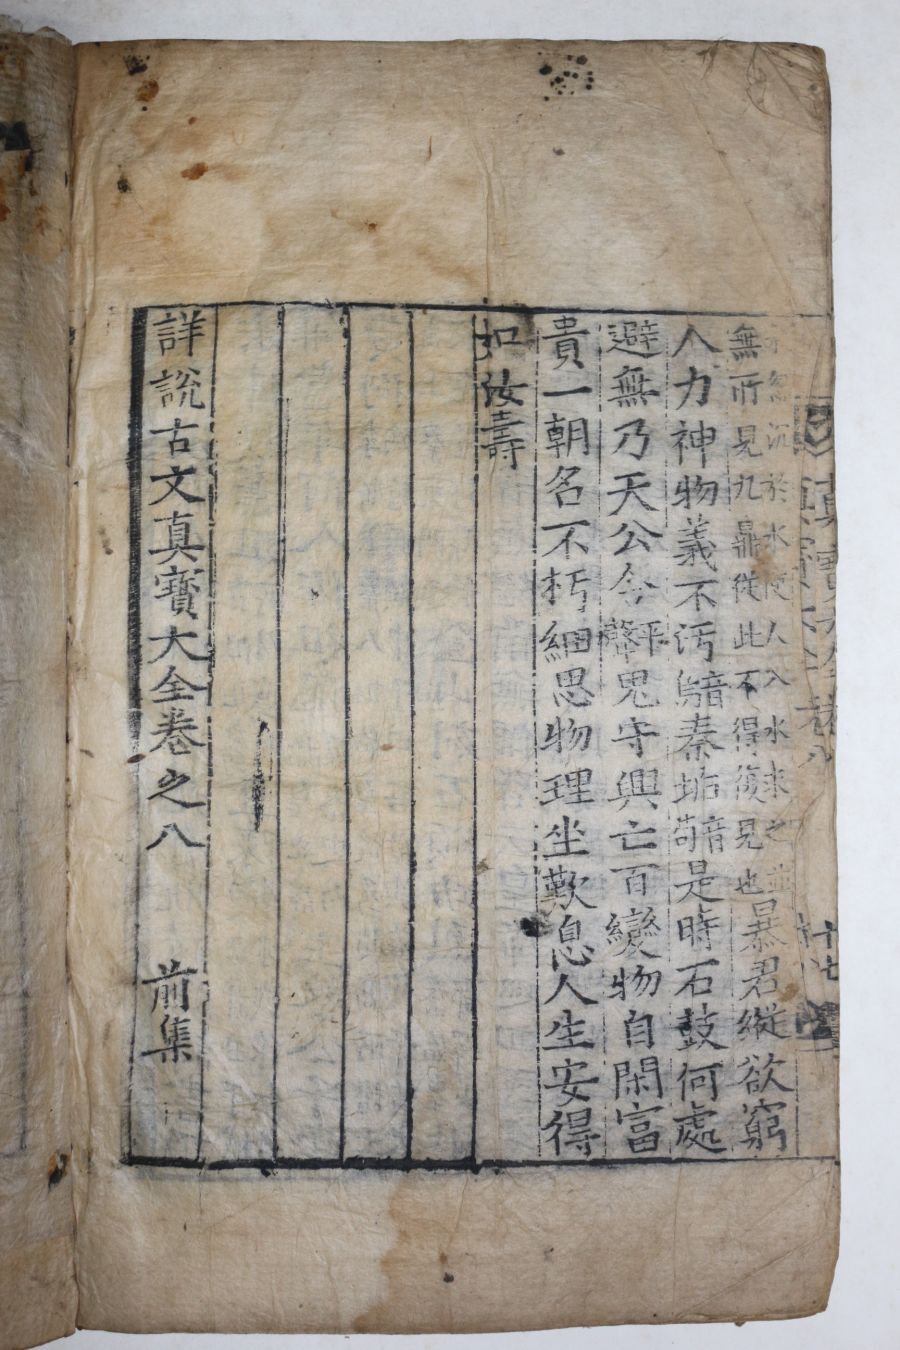 真寶大全卷八 十七
忽沉於水使人入水求之並
無所見九鼎從此不得復見也
暴君縱欲窮
人力神物義不汚音烏秦垢音苟是時石鼓何處
避無乃天公令平聲鬼守興亡百變物自閑富
貴一朝名不朽細思物理坐歎息人生安得
如汝壽
詳說古文真寶大全卷之八 前集